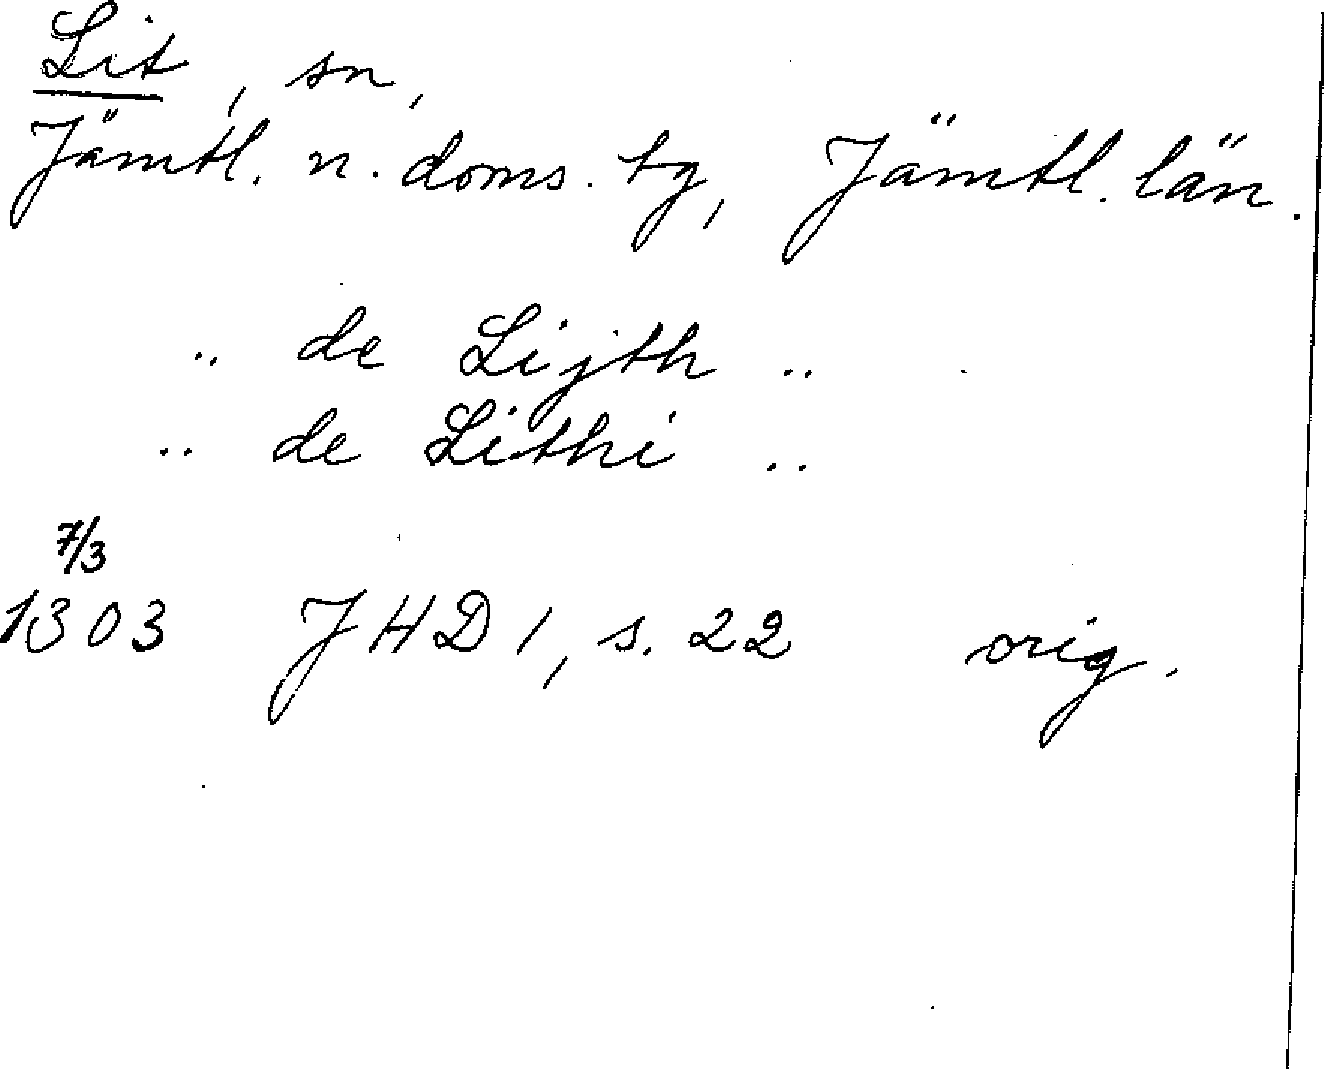 Lit, sn,
Jämtl. n. doms. tg, Jämtl. län.
.. de Lijth ..
.. de Lithi ..
7/3
1303 JHD 1, s. 22 orig.